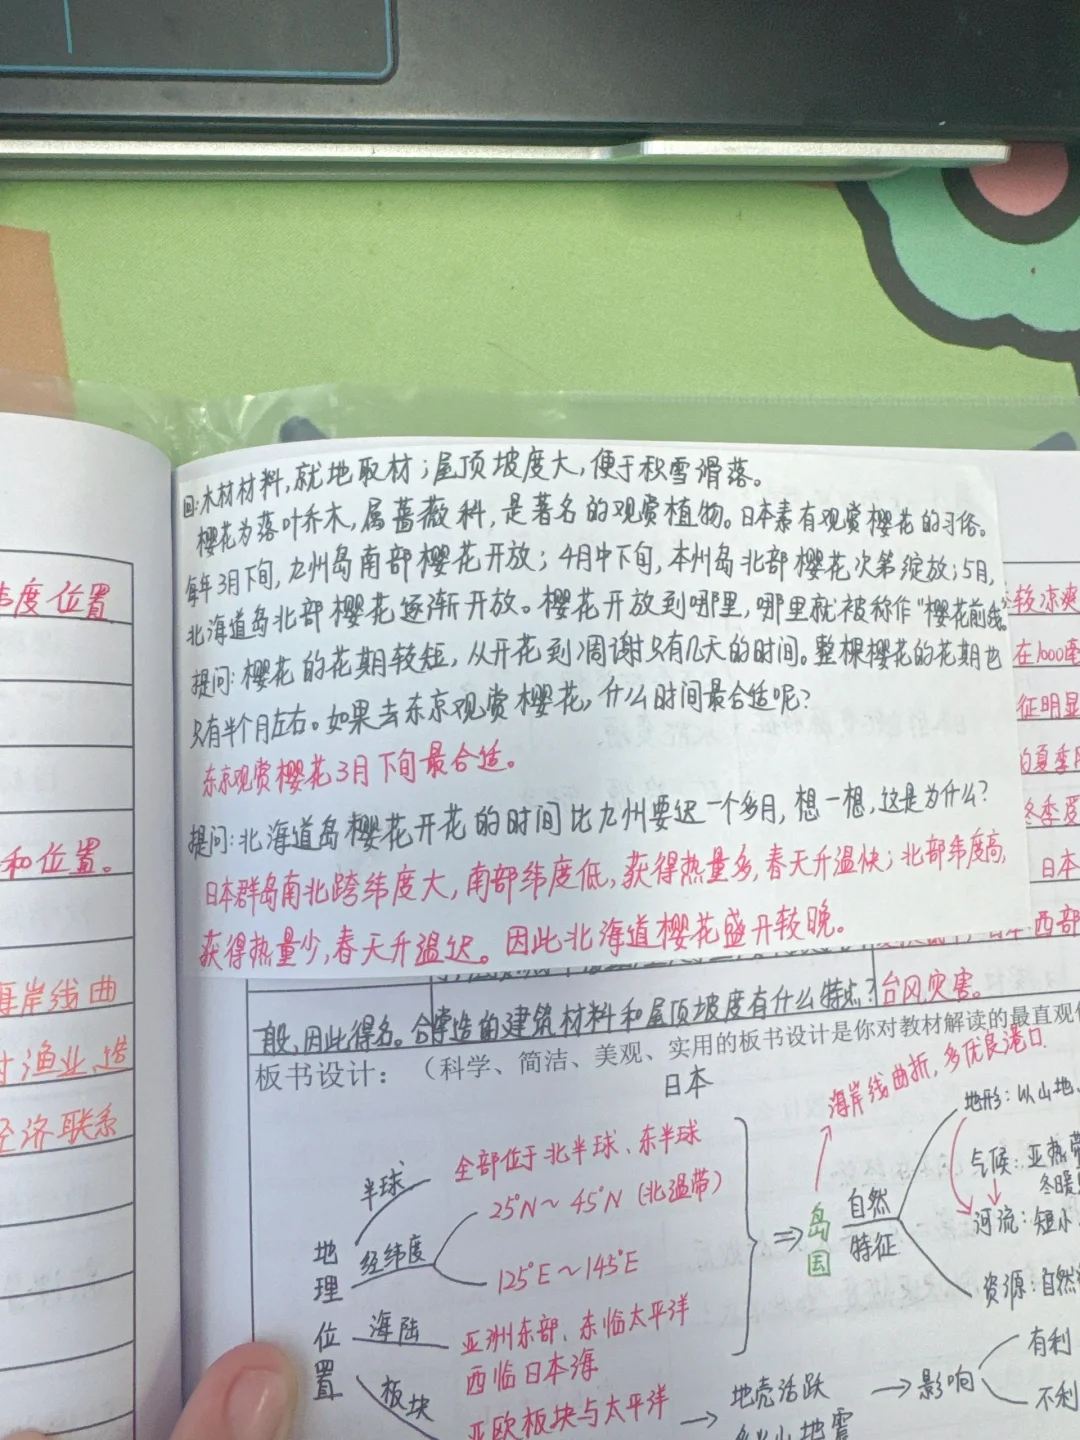 回:木材材料,就地取材;屋顶坡度大,便于积雪滑落。
樱花为落叶乔木,属蔷薇科,是著名的观赏植物。日本素有观赏樱花的习俗。
每年3月下旬,九州岛南部樱花开放;4月中下旬,本州岛北部樱花次第绽放;5月,
北海道岛北部樱花逐渐开放。樱花开放到哪里,哪里就被称作“樱花前线。
提问:樱花的花期较短,从开花到凋谢只有几天的时间。整棵樱花的花期也
只有半个月左右。如果去东京观赏樱花,什么时间最合适呢?
东京观赏樱花3月下旬最合适。
提问:北海道岛樱花开花的时间比九州要迟一个多月,想一想,这是为什么?
日本群岛南北跨纬度大,南部纬度低,获得热量多,春天升温快;北部纬度高,
获得热量少,春天升温迟。因此北海道樱花盛开较晚。
度位置
和位置。
海岸线曲
渔业、
经济联系
较凉爽
在1000毫
征明显
的夏季
冬季
日本
西部
台风灾害。
般,因此得名。合掌造的建筑材料和屋顶坡度有什么特点?
板书设计:(科学、简洁、美观、实用的板书设计是你对教材解读的最直观
日本
海岸线曲折,多优良港口
地理位置
半球
全部位于北半球、东半球
经纬度
25°N~45°N(北温带)
125°E~145°E
海陆
亚洲东部、东临太平洋
西临日本海
板块
亚欧板块与太平洋
→地壳活跃
地震
→影响
有利
不利
⇒岛国
自然特征
地形:以山地、
气候:亚热带
冬暖
河流:短小
资源:自然